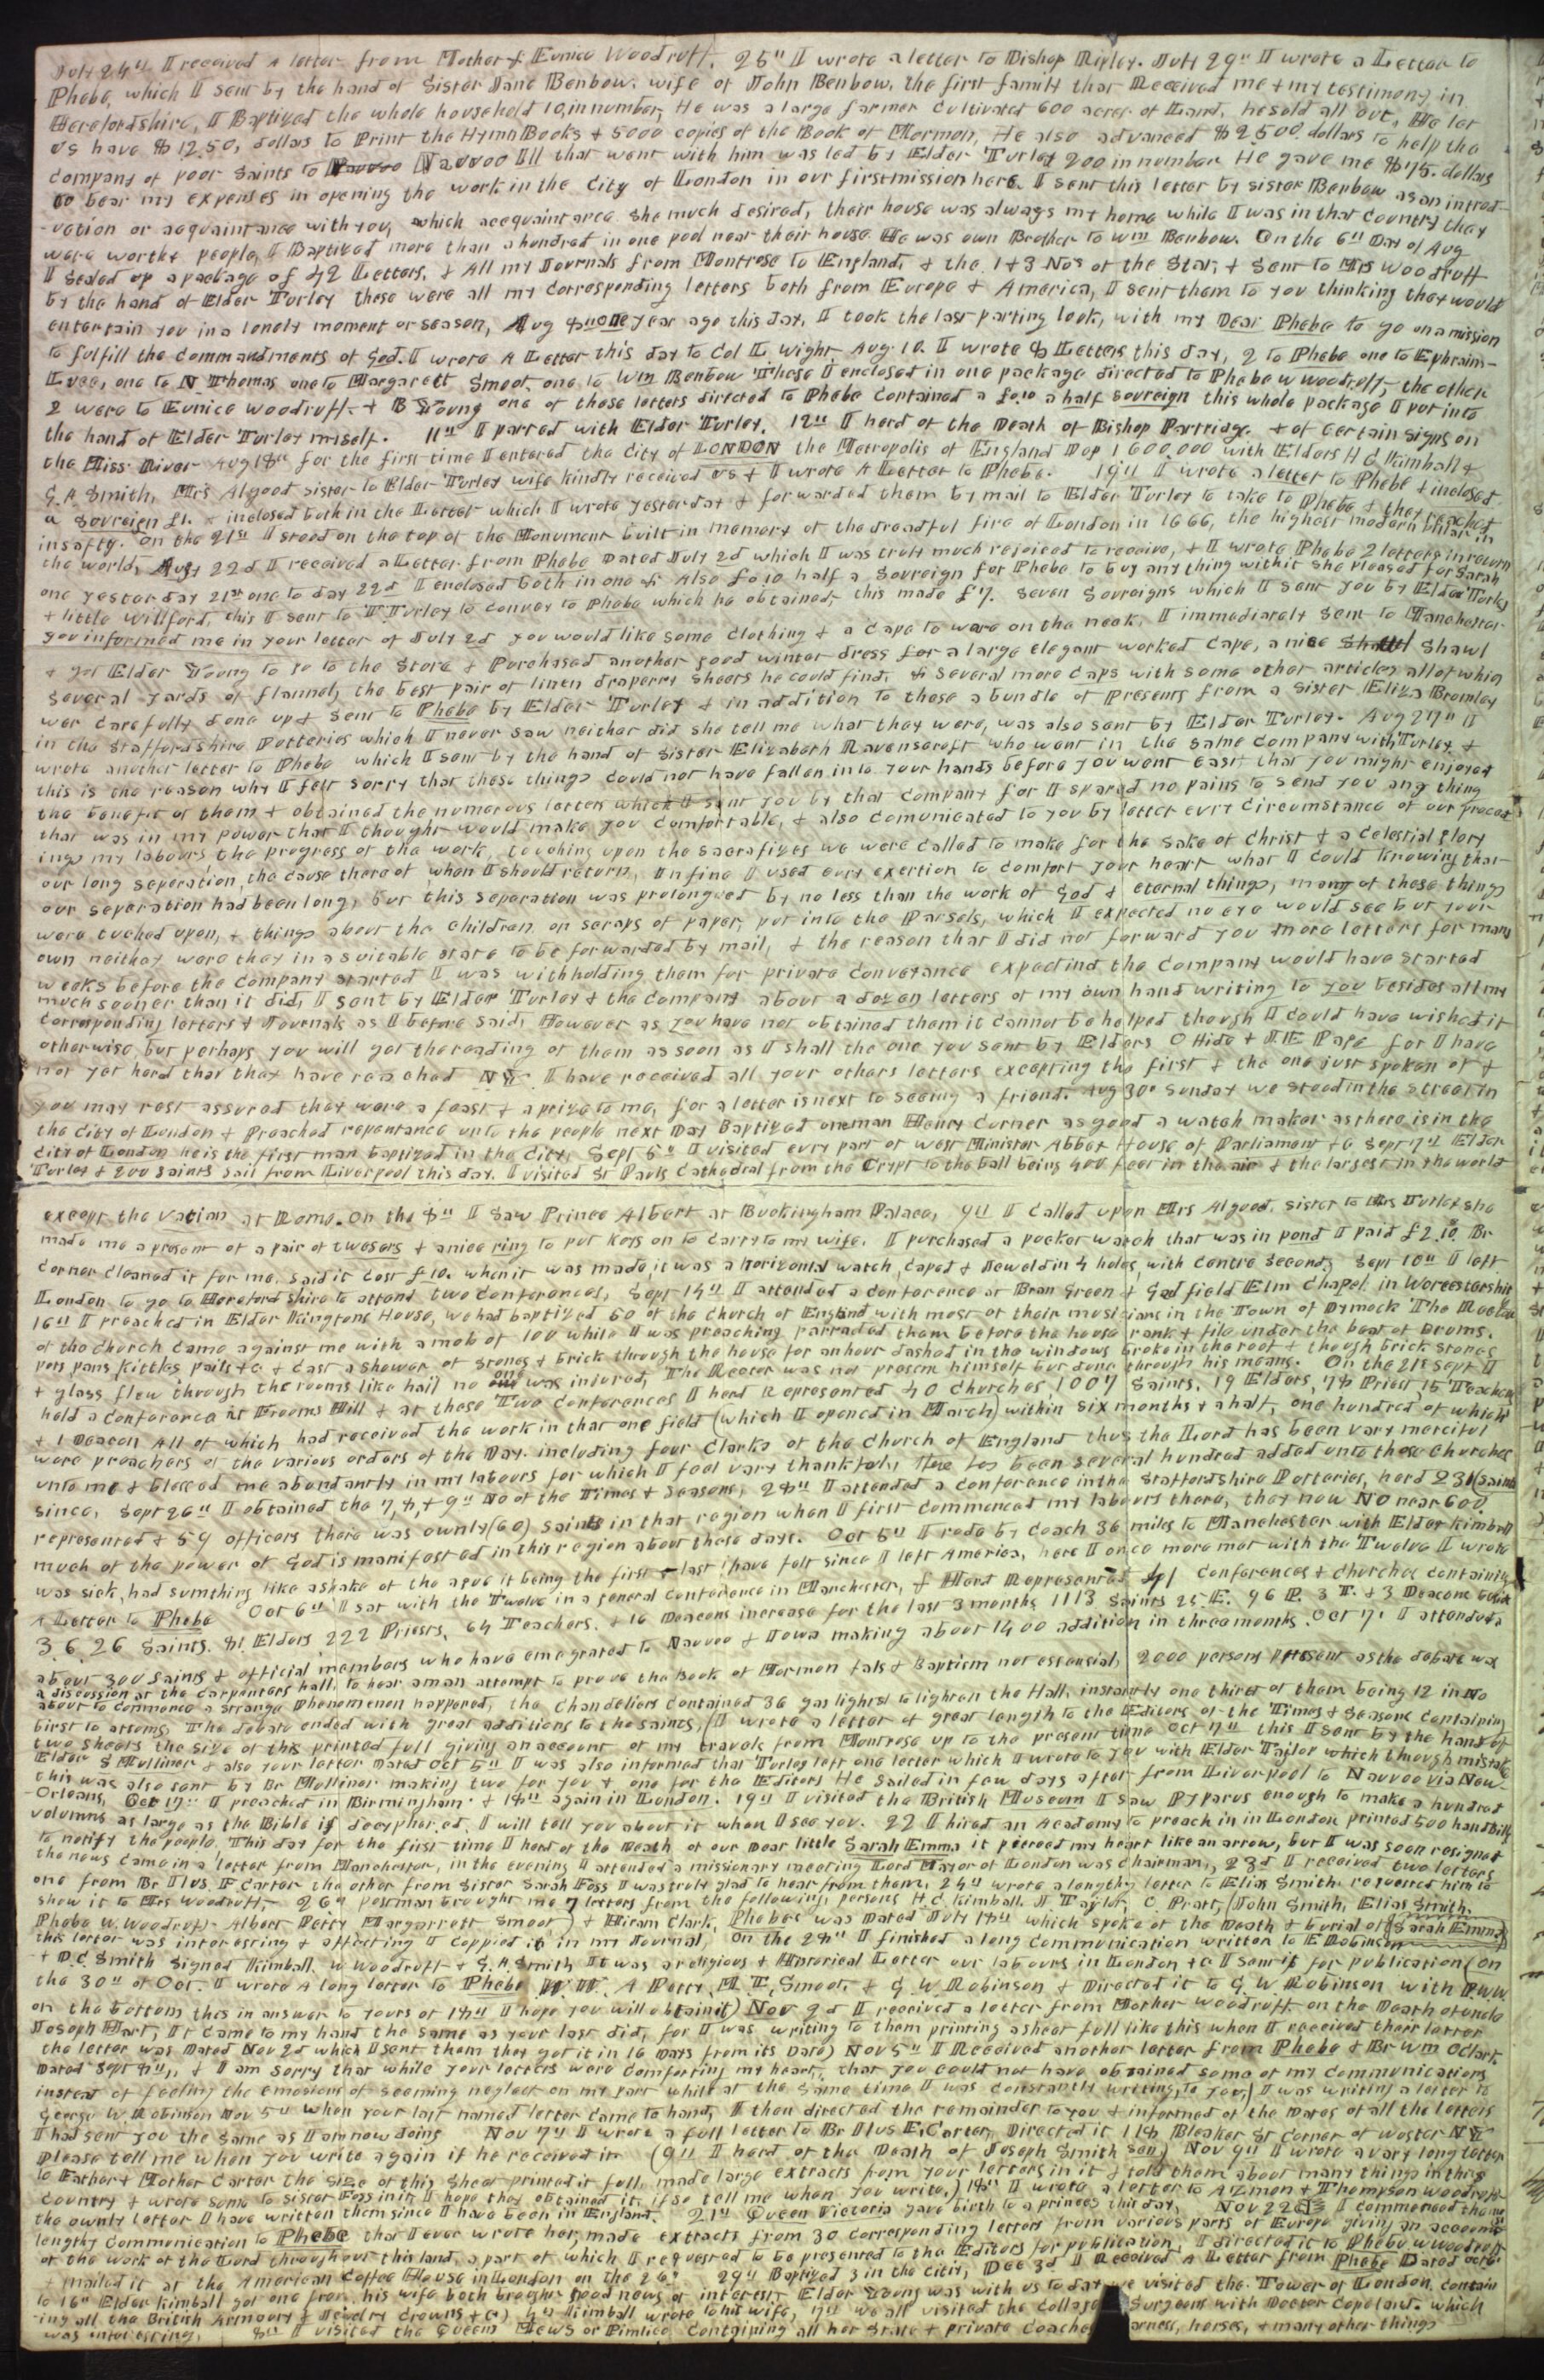 July 24th I received A letter from Mother & Eunice Woodruff. 25th I wrote a letter to Bishop Ripley. July 29th I wrote a Letter to
Phebe, which I sent by the hand of Sister Jane Benbow. wife of John Benbow. the first family that Received me & my testimony in
Herefordshire, I Baptized the whole household 10, in number, He was a large farmer Cultivated 600 acres of Land, he sold all out, He let
us have $1250, dollars to Print the Hymn Books & 5000 copies of the Book of Mormon, He also advanced $2500 dollars to help the
company of poor Saints to Nauvoo All that went with him was led by Elder Turley 200 in number He gave me $75. dollars
to bear my expenses in opening the work in the City of London in our first mission here. I sent this letter by sister Benbow as an introd-
-uction or acquaintance with you, which acequaintance she much desired, their house was always my home while I was in that Country they
were worthy people, I Baptized more than a hundred in one pool near their house He was own Brother to Wm Benbow. On the 6th Day of Aug
I Sealed up a package of 42 Letters, & All my Journals from Montrose to England, & the 1 & 3 Nos of the Star, & Sent to Mrs Woodruff
by the hand of Elder Turley these were all my Corresponding letters both from Europe & America, I sent them to you thinking they would
entertain you in a lonely moment or season, Aug 8th one year ago this day, I took the last parting look, with my Dear Phebe to go on a mission
to fulfill the commandments of God. I wrote A Letter this day to Col L Wight, Aug. 10. I wrote 8 Letters this day, 2 to Phebe one to Ephraim-
Luce, one to N Thomas one to Margarett Smoot, one to Wm Benbow These I enclosed in one package directed to Phebe W Woodruff, the other
2 were to Eunice Woodruff & B Young one of these letters directed to Phebe Contained a £0.10 a half sovreign this whole package I put into
the hand of Elder Turley myself. 11th I parted with Elder Turley. 12th I herd of the Death of Bishop Partridge. & of Certain Signs on
the Miss River Aug 18th for the first time I entered the City of LONDON the Metropolis of England Pop 1600,000 with Elders H C Kimball &
G. A Smith, Mrs Algood sister to Elder Turley wife kindly received us & I wrote A Letter to Phebe. 19th I wrote a letter to Phebe & inclosed
a Sovreign £1. & inclosed both in the Letter which I wrote yesterday & forwarded them by mail to Elder Turley to take to Phebe & they reached
in safty. On the 21st I stood on the top of the Monument built in memory of the dreadful fire of London in 1666, the highest modern pillar in
the world, Aug 22d I received a Letter from Phebe Dated July 2d which I was truly much rejoiced to receive, & I wrote Phebe 2 letters in return
one yesterday 21st one to day 22d I enclosed both in one & Also £0.10 half a Sovreign for Phebe to buy any thing with it she pleased for Sarah
& little Willford, this I sent to T Turley to Convey to Phebe which he obtained, this made £7. Seven Sovreigns which I sent you by Elder Turley
you informed me in your letter of July 2d you would like some Clothing & a Cape to ware on the neck. I immediately sent to Manchester
& got Elder Young to go to the Store & Purchased another good winter dress for a large elegant worked Cape, a nice Shawl
several yards of flannel, the best pair of linen draperry sheets he could find, & Several more Caps with some other articles all of which
wer carefully done up & Sent to Phebe by Elder Turley & in addition to these a bundle of Presents from a sister Eliza Bromley
in the Staffordshire Potteries which I never saw neither did she tell me what they were, was also sent by Elder Turley. Aug 27th I
wrote another letter to Phebe which I sent by the hand of Sister Elizabeth Ravenscroft who went in the same Company with Turley &
this is one reason why I felt sorry that these things Could not have fallen into your hands before you went East that you might enjoyed
the benefit of them & obtained the numerous letters which I sent you by that company for I spared no pains to send you any thing
that was in my power that I thought would make you comfortable, & also Comunicated to you by letter evry circumstance of our proceed
ings my labours the progress of the work, touching upon the sacrafizes we were called to make for the sake of Christ & a Celestial glory
our long seperation, the cause thereof when I should return, In fine I used evry exertion to comfort your heart what I could knowing that
our seperation had been long, but this separation was prolongued by no less than the work of God & eternal things, many of these things
were tuched upon, & things about the children, on scraps of paper, put into the Parsels, which I expected no eye would see but your
own neither were they in a suitable state to be forwarded by mail, & the reason that I did not forward you more letters for many
weeks before the Company started I was withholding them for private conveyance expecting the Company would have started
much sooner than it did, I sent by Elder Turley & the company about a dozen letters of my own hand writing to you besides all my
corresponding letters & Journals as I before said, However as you have not obtained them it cannot be helped though I could have wished it
otherwise, but perhaps you will get the reading of them as soon as I shall the one you sent by Elders O Hide & J E Page for I have
not yet herd that they have reached NY. I have received all your others letters excepting the first & the one just spoken of &
you may rest assured they were a feast & a prize to me, for a letter is next to seeing a friend. Aug 30th Sunday we stood in the street in
the City of London & Preached repentance unto the people next Day Baptized one man Henry Corner as good a watch maker as there is in the
City of London he is the first man baptized in the City, Sept 5th I visited evry part of West Minister Abbey House of Parliament &c Sept 7th Elder
Turley & 200 Saints sail from Liverpool this day. I visited St Pauls Cathedral from the Crypt to the ball being 400 feet in the air & the largest in the world
except the Vatican at Rome. On the 8th I Saw Prince Albert at Buckingham Palace, 9th I Called upon Mrs Algood. sister to Mrs Turley she
made me a present of a pair of twesers & a nice ring to put keys on to carry to my wife. I purchased a pocket watch that was in pond I paid £2.10. Br
Corner Cleaned it for me. Said it cost £10. when it was made, it was a horizontal watch, caped & Jeweld in 4 holes, with Centre Seconds Sept 10th I left
London to go to Herefordshire to attend two Conferences, Sept 14th I attended a conference at Bran Green & Gadfield Elm Chapel in Worcestershire
16th I preached in Elder Kingtons House, we had baptized 50 of the Church of England with most of their musicians in the Town of Dymock The Rector
of the Church came against me with a mob of 100 while I was preaching parraded them before the house rank & file under the beat of Drums.
pots pans kittles pails &c & cast a shower of Stones & brick through the house for an hour dashed in the windows broke in the roof & though brick stones
& glass flew through the rooms like hail no one was injured, The Rector was not present himself but done through his means. On the 21st Sept I
held a conference at Frooms Hill & at these Two Conferences I herd Represented 40 Churches 1007 Saints. 19 Elders, 78 Priest 15 Teachers
& 1 Deacon All of which had received the work in that one field (which I opened in March) within six months & a half, one hundred of which
were preachers of the various orders of the Day. including four Clarks of the Church of England thus the Lord has been vary merciful
unto me & blessed me abundantly in my labours for which I feel vary thankful, There has been several hundred added unto these Churches
since, Sept 26th I obtained the 7, 8, & 9th No of the Times & Seasons, 28th I attended a conference in the Staffordshire Potteries, herd 231 (Saints
represented & 59 officers there was ownly (60) Saints in that region when I first commenced my labours there, they now No near 600
much of the power of God is manifested in this region about these days. Oct 5th I rode by Coach 36 miles to Manchester with Elder Kimball
was sick, had sumthing like a shake of the ague it being the first & last I have felt since I left America, here I once more met with the Twelve I wrote
A Letter to Phebe Oct 6th I sat with the Twelve in a general Conference in Manchester, & Herd Represented 41 Conferences & Churches Containing
3,6,26 Saints. 81 Elders 222 Priests, 64 Teachers. & 16 Deacons increase for the last 3 months 1113 Saints 25 E. 96 P. 3 T. & 3 Deacons beside
about 300 Saints & official members who have emegrated to Nauvoo & Iowa making about 1400 addition in three months. Oct 7. I attended
a discussion at the Carpenters hall, to hear a man attempt to prove the Book of Mormon fals & Baptism not essensial, 2000 persons present as the debate was
about to commence a strange phenomenon happened, the Chandeliers contained 36 gas lights to lighten the Hall, instantly one third of them being 12 in No
birst to attoms, The debate ended with great additions to the saints, (I wrote a letter of great length to the Editors of the Times & Seasons containing
two sheets the size of this printed full giving an account of my travels from Montrose up to the present time Oct 7th this I sent by the hand of
Elder S Mulliner & also your letter Dated Oct 5th I was also informed that Turley left one letter which I wrote to you with Elder Taylor which though mistake
this was also sent by Br Mulliner making two for you & one for the Editors He sailed in few days after from Liverpool to Nauvoo via New-
-Orleans, Oct 17th I preached in Birmingham & 18th again in London. 19th I visited the British Museum I saw Pyparus enough to make a hundred
volumns as large as the Bible if decypher,ed. I will tell you about it when I see you. 22 I hired an Academy to preach in in London printed 500 handbills
to notify the people, This day for the first time I herd of the Death of our Dear little Sarah Emma it pierced my heart like an arrow, but I was soon resigned
the news came in a letter from Manchester, in the evening I attended a missionary meeting Lord Mayor of London was chairman, 23d I received two letters
one from Br Ilus F Carter the other from Sister Sarah Foss I was truly glad to hear from them, 24th wrote a lengthy letter to Elias Smith requested him to
show it to Mrs Woodruff, 26th postman brought me 7 letters from the following persons H. C. Kimball. J Taylor, O. Pratt, (John Smith, Elias Smith.
Phebe W. Woodruff Albert Petty Margarrett Smoot) & Hiram Clark, Phebes was Dated July 18th which spoke of the Death & burial of (Sarah Emma)
this letter was interesting & affecting I coppied it in my Journal, On the 28th I finished a long communication written to E Robinson
& D.C. Smith Signed Kimball, W Woodruff & G. A Smith It was a religious & Historical Letter our labours in London &c I sent it for publication (on
the 30th of Oct. I wrote A long letter to Phebe W. W. A Petty, M. T. Smoot, & G. W. Robinson & Directed it to G. W Robinson with P.W.W.
on the bottom this in answer to yours of 18th I hope you will obtain it) Nov 2d I received a letter from Mother Woodruff on the Death of uncle
Joseph Hart, It came to my hand the same as your last did, for I was writing to them printing a sheet full like this when I received their letter
the letter was Dated Nov 2d which I sent them they got it in 16 Days from its Date) Nov 5th I Received another letter from Phebe & Br Wm O Clark
Dated Sept 8th, & I am sorry that while your letters were comforting my heart, that you could not have obtained some of my communications
insteat of feeling the emosions of seeming neglect on my part while at the same time I was constantly writing to you,) I was writing a letter to
George W. Robinson Nov 5th when your last named letter came to hand, I then directed the remainder to you & informed of the Dates of all the letters
I had sent you the same as I am now doing Nov 7th I wrote a full letter to Br Ilus F. Carter, Directed it 118 Bleaker St Corner of Woster NY
please tell me when you write again if he received it (9th I herd of the Death of Joseph Smith Sen) Nov 9th I wrote a vary long letter
to Father & Mother Carter the size of this sheet printed it full, made large extracts from your letters in it & told them about many things in this
country & wrote some to Sister Foss in it I hope they obtained it, if so tell me when you write,) 18th I wrote a letter to Azmon & Thompson Woodruff
the ownly letter I have written them since I have been in England. 21st Queen Victoria gave birth to a princes this day, Nov 22d I commenced the most
lengthy Communication to Phebe that I ever wrote her, made extracts from 30 corresponding letters from various parts of Europe giving an account
of the work of the Lord throughout this land, a part of which I requested to be presented to the Editors for publication, I directed it to Phebe W Woodruff
& mailed it at the American Coffee House in London on the 26th. 29th Baptized 3 in the City, Dec 3d I Received A Letter from Phebe Dated Oct 6
to 16th Elder Kimball got one from his wife both brought good news of interest, Elder Young was with us to day we visited the Tower of London, contain
ing all the British Armoury & Jewelry Crowns &c) 4th Kimball wrote to his wife, 7th we all visited the College Surgeons with Doctor Copeland. which
was interesting. 8th I visited the Queen Mews or Pimlico Containing all her State & private Coaches harness, horses, & many other things